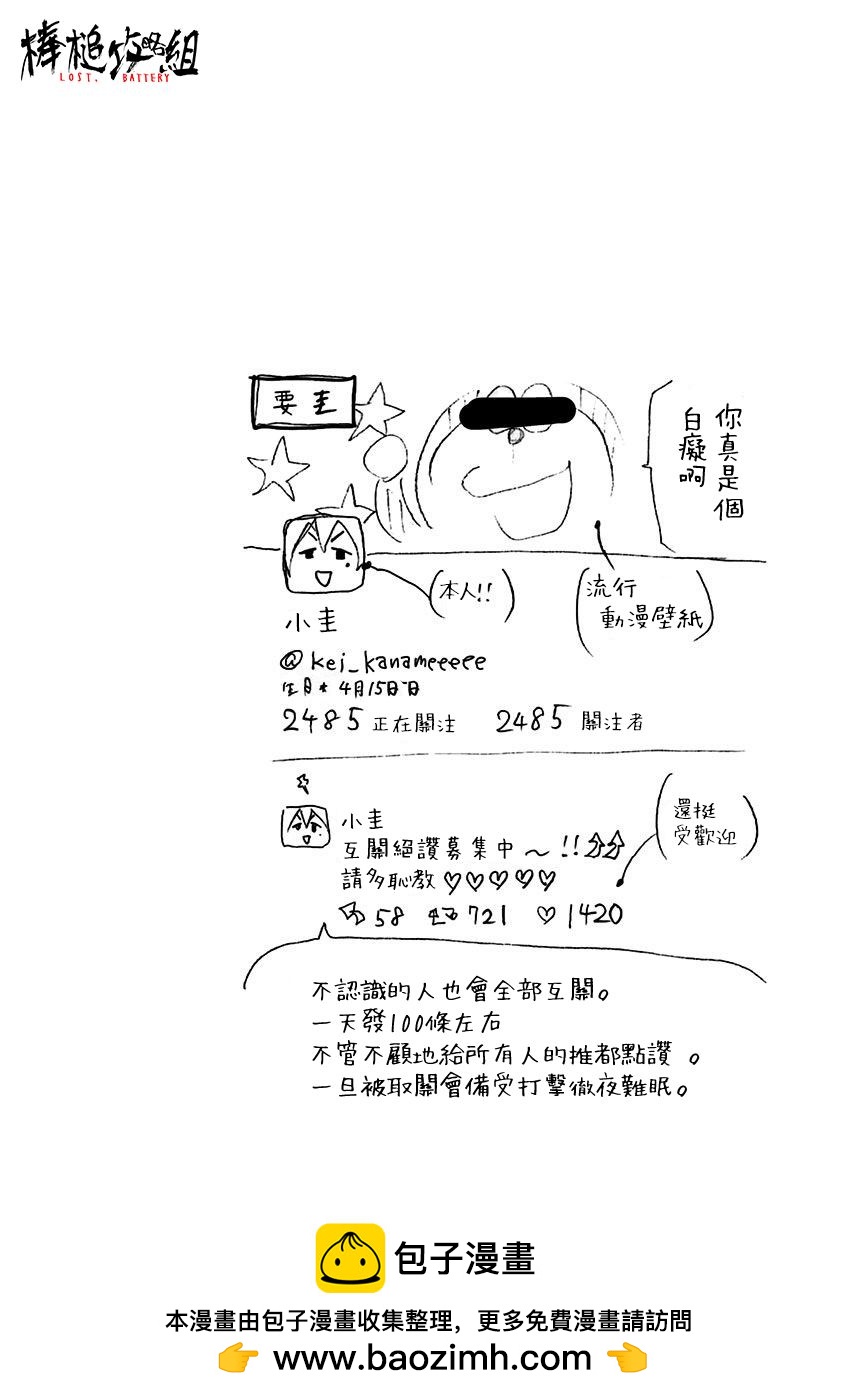 棒槌攻略組
LOST. BATTERY
要圭
你真是個
白癡啊
(本人!!)
(流行
動漫壁紙)
小圭
@kei_kanameeeee
生日★4月15日
2485 正在關注 2485 關注者
(還挺
受歡迎)
小圭
互關絕讚募集中～!!
請多恥教♡♡♡♡♡
58 721 ♡1420
不認識的人也會全部互關。
一天發100條左右
不管不顧地給所有人的推都點讚。
一旦被取關會備受打擊徹夜難眠。
包子漫畫
本漫畫由包子漫畫收集整理，更多免費漫畫請訪問
👉 www.baozimh.com 👈